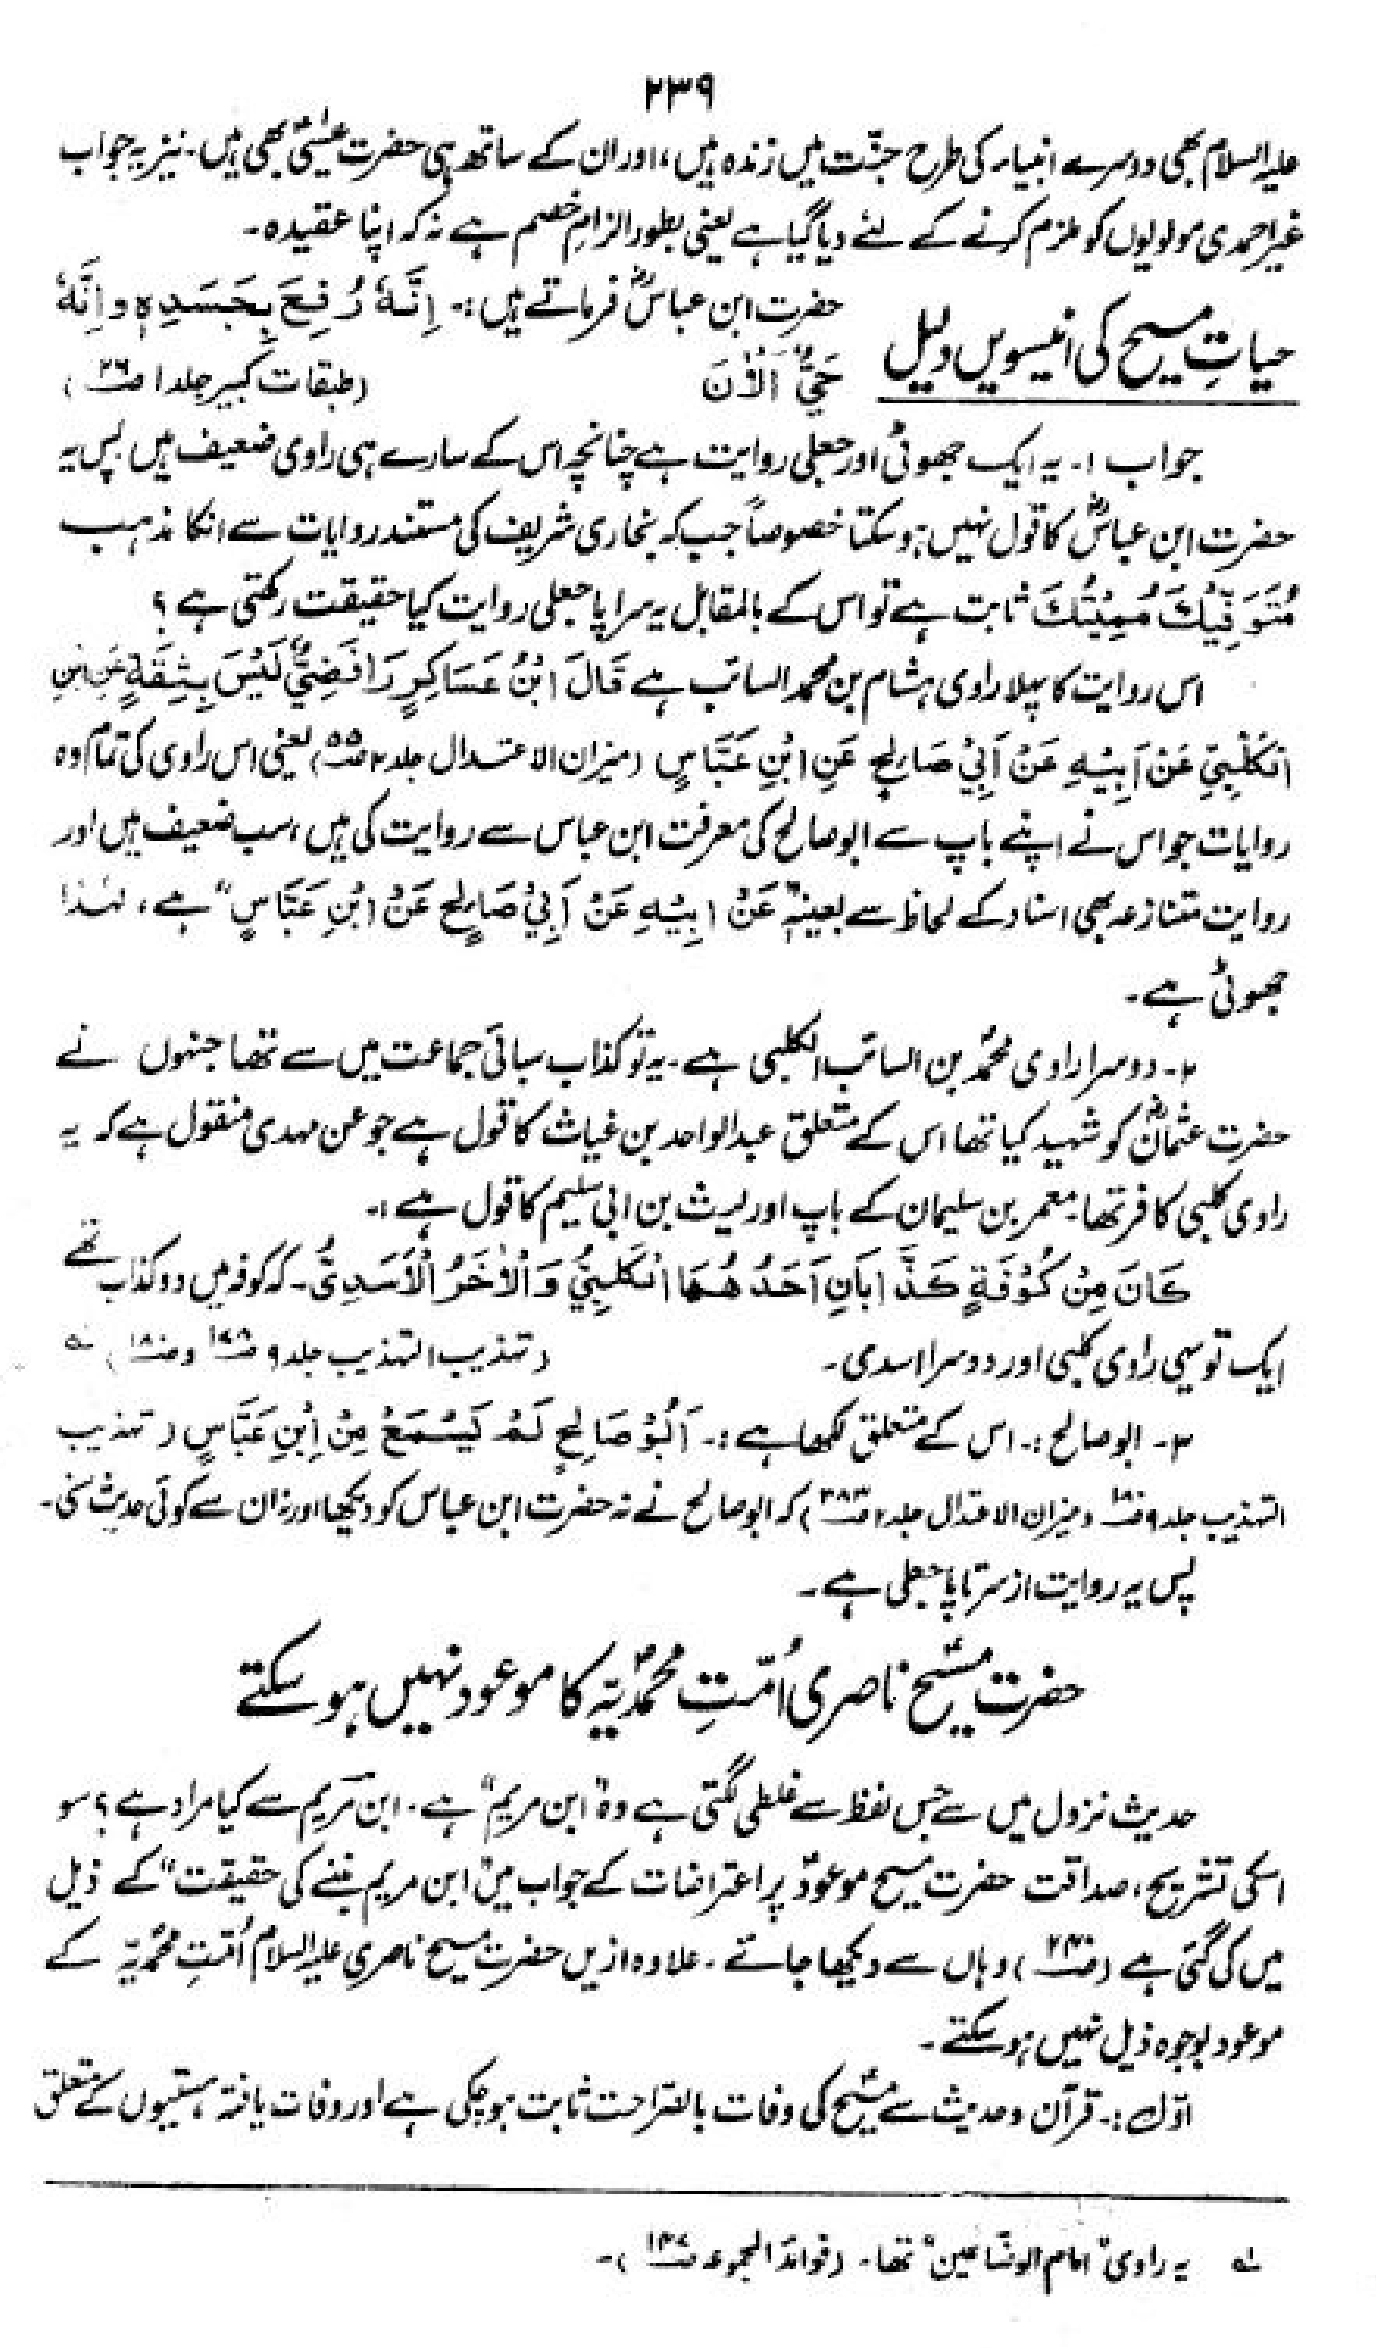 ۲۳۹
علیہ السلام بھی دوسرے انبیاء کی طرح جنّت میں زندہ ہیں، اور ان کے ساتھ ہی حضرت عیسٰیؑ بھی ہیں۔ نیز یہ جواب
غیر احمدی مولویوں کو ملزم کرنے کے لئے دیا گیا ہے یعنی بطور الزامِ خصم ہے نہ کہ اپنا عقیدہ۔
حیاتِ مسیح کی انیسویں دلیل
حضرت ابن عباسؓ فرماتے ہیں :۔ اِنَّہٗ رُفِعَ بِجَسَدِہٖ وَاِنَّہٗ
حَیٌّ اَلْاٰنَ (طبقات کبیر جلد ۱ ص۲۶)
جواب ۱۔ یہ ایک جھوٹی اور جعلی روایت ہے چنانچہ اس کے سارے ہی راوی ضعیف ہیں پس یہ
حضرت ابن عباسؓ کا قول نہیں ہو سکتا خصوصاً جب کہ بخاری شریف کی مستند روایات سے انکا مذہب
مُتَوَفِّیْکَ مُمِیْتُکَ ثابت ہے تو اس کے بالمقابل یہ سراپا جعلی روایت کیا حقیقت رکھتی ہے ؟
اس روایت کا پہلا راوی ہشام بن محمد السائب ہے قَالَ ابْنُ عَسَاکِرٍ رَافَضِیٌّ لَیْسَ بِثِقَةٍ عَنِ ابْنِ
الْکَلْبِیِّ عَنْ اَبِیْہِ عَنْ اَبِیْ صَالِحٍ عَنِ ابْنِ عَبَّاسٍ (میزان الاعتدال جلد ۲ ص۵۵) یعنی اس راوی کی تمام وہ
روایات جو اس نے اپنے باپ سے ابو صالح کی معرفت ابن عباس سے روایت کی ہیں، سب ضعیف ہیں اور
روایت متنازعہ بھی اسناد کے لحاظ سے بعینہٖ "عَنْ اَبِیْہِ عَنْ اَبِیْ صَالِحٍ عَنْ ابْنِ عَبَّاسٍ" ہے، لہٰذا
جھوٹی ہے۔
۲۔ دوسرا راوی محمدؐ بن السائب الکلبی ہے۔ یہ تو کذاب سبائی جماعت میں سے تھا جنہوں نے
حضرت عثمانؓ کو شہید کیا تھا اس کے متعلق عبدالواحد بن غیاث کا قول ہے جو عن مہدی منقول ہے کہ یہ
راوی کلبی کافر تھا۔ معمر بن سلیمان کے باپ اور لیث بن ابی سلیم کا قول ہے :۔
کَانَ مِنْ کُوْفَةٍ کَذَّابَانِ اَحَدُ ھُمَا الْکَلْبِیُّ وَالْاٰخَرُ الْاَسَدِیُّ۔ کہ کوفہ میں دو کذاب تھے
ایک تو یہی راوی کلبی اور دوسرا اسدی۔ (تہذیب التہذیب جلد ۹ ص وص۱۸۰) لہ
۳۔ ابو صالح :۔ اس کے متعلق لکھا ہے :۔ اَبُوْ صَالِحٍ لَمْ یَسْمَعْ مِنْ اِبْنِ عَبَّاسٍ (تہذیب
التہذیب جلد ۹ ص۱۸۰ ومیزان الاعتدال جلد ۲ ص۳۸۳) کہ ابو صالح نے نہ حضرت ابن عباس کو دیکھا اور نہ ان سے کوئی حدیث سنی۔
پس یہ روایت از سر تا پا جعلی ہے۔
حضرت مسیحؑ ناصری اُمّتِ محمدؐیہ کا موعود نہیں ہو سکتے
حدیث نزول میں سے جس لفظ سے غلطی لگتی ہے وہ "ابن مریم" ہے۔ ابن مریم سے کیا مراد ہے؟ سو
اسکی تشریح، صداقت حضرت مسیح موعودؑ پر اعتراضات کے جواب میں "ابن مریم بننے کی حقیقت" کے ذیل
میں کی گئی ہے (ص) وہاں سے دیکھا جائے۔ علاوہ ازیں حضرت مسیح ناصری علیہ السلام اُمّتِ محمدیہ کے
موعود بوجوہ ذیل نہیں ہو سکتے۔
اوّل :۔ قرآن و حدیث سے مسیحؑ کی وفات بالصراحت ثابت ہو چکی ہے اور وفات یافتہ ہستیوں کے متعلق
لہ یہ راوی "امام الوضّاعین" تھا۔ (فوائد المجموعہ ص)۔